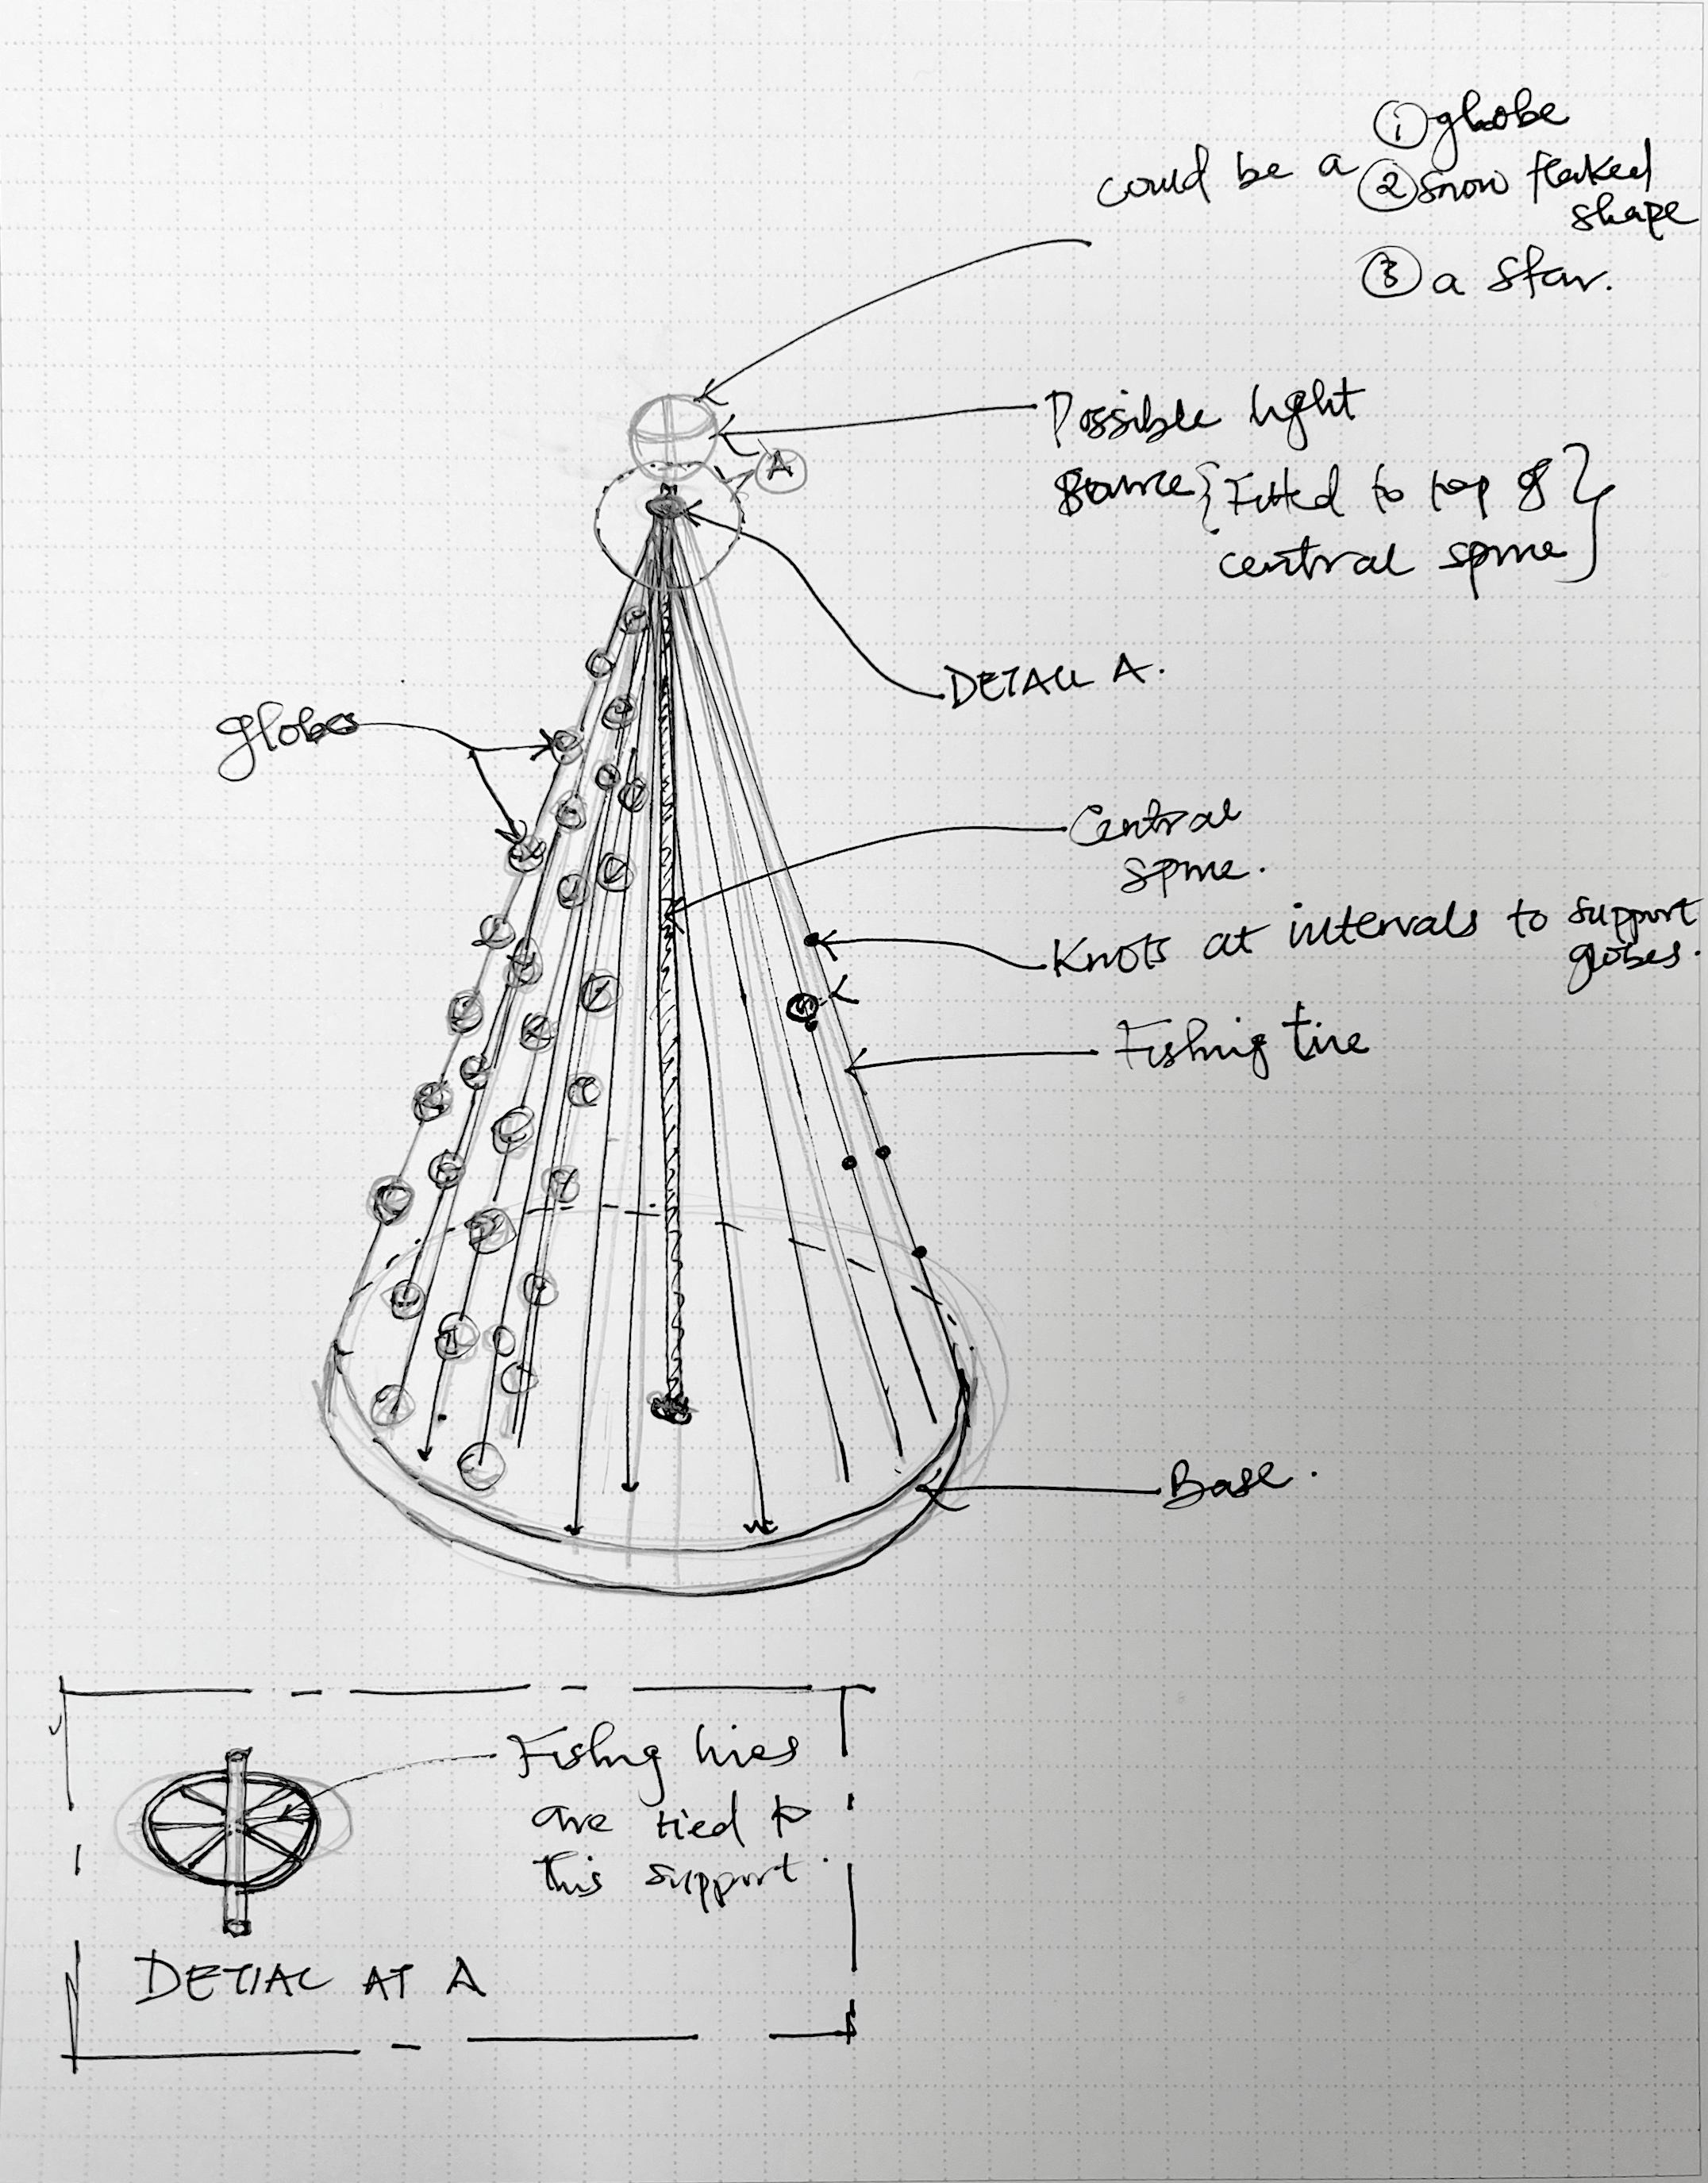 could be a ① globe
② snow flaked
shape
③ a star.
Possible light
source {Fitted to top of}
central spine
A
DETAIL A.
globes
Central
spine.
Knots at intervals to support
globes.
Fishing line
Base.
Fishing lines
are tied to
this support.
DETIAL AT A